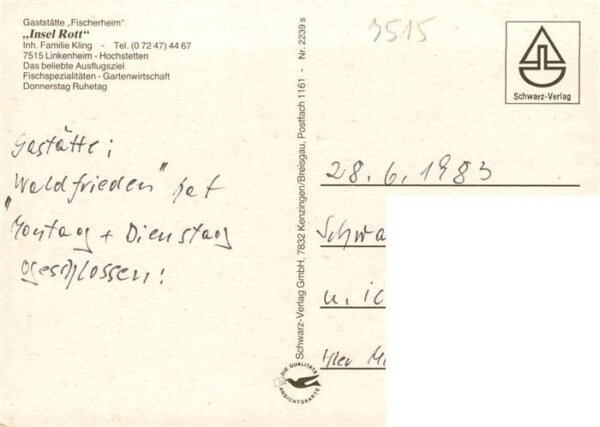 Gaststätte „Fischerheim"
„Insel Rott"
Inh. Familie Kling - Tel. (0 72 47) 44 67
7515 Linkenheim - Hochstetten
Das beliebte Ausflugsziel
Fischspezialitäten - Gartenwirtschaft
Donnerstag Ruhetag
Gastätte:
"Waldfrieden" hat
Montag + Dienstag
geschlossen!
Schwarz-Verlag GmbH, 7832 Kenzingen/Breisgau, Postfach 1161 - Nr. 2239 s
DIE QUALITÄTS
ANSICHTSKARTE
7515
Schwarz-Verlag
28.6.1983
Schwa
u. ic
Hier